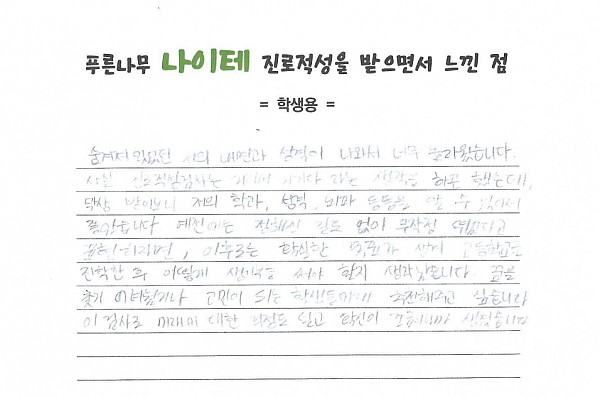 푸른나무 나이테 진로적성을 받으면서 느낀 점
= 학생용 =
숨겨져 있었던 저의 내면과 성격이 나와서 너무 놀라웠습니다.
사실 진로적성검사는 거기서 거기다 라는 생각을 하곤 했는데,
막상 받아보니 저의 학과, 성격, 뇌파 등등을 알 수 있어서
좋았습니다 예전에는 정해진 길도 없이 무작정 뛰었다고
표현하자면, 이후로는 확실한 목표가 생겨 고등학교를
진학한 후 어떻게 생기부를 써야 할지 생각났습니다. 꿈을
찾기 어려워하거나 고민이 되는 학생들에게 추천해주고 싶습니다
이 검사로 미래에 대한 걱정도 덜고 확신이 생겼습니다